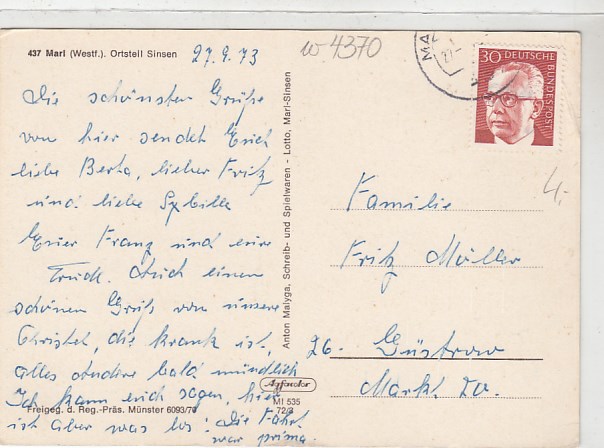 437 Marl (Westf.). Ortsteil Sinsen
27.9.73
w 4370
Die schönsten Grüße
von hier sendet Euch
liebe Berta, lieber Fritz
und liebe Sybille
Euer Franz und eure
Trudl. Auch einen
schönen Gruß von unsere
Christel, die krank ist,
alles andere bald mündlich
Ich kann euch sagen, hier
ist aber was los! Die Fahrt
war prima
Freigeg. d. Reg.-Präs. Münster 6093/70
Anton Malyga, Schreib- und Spielwaren - Lotto, Marl-Sinsen
Agfacolor
MI 535
72/3
MA
30 DEUTSCHE BUNDESPOST
4,-
Familie
Fritz Müller
26. Güstrow
Markt 20.